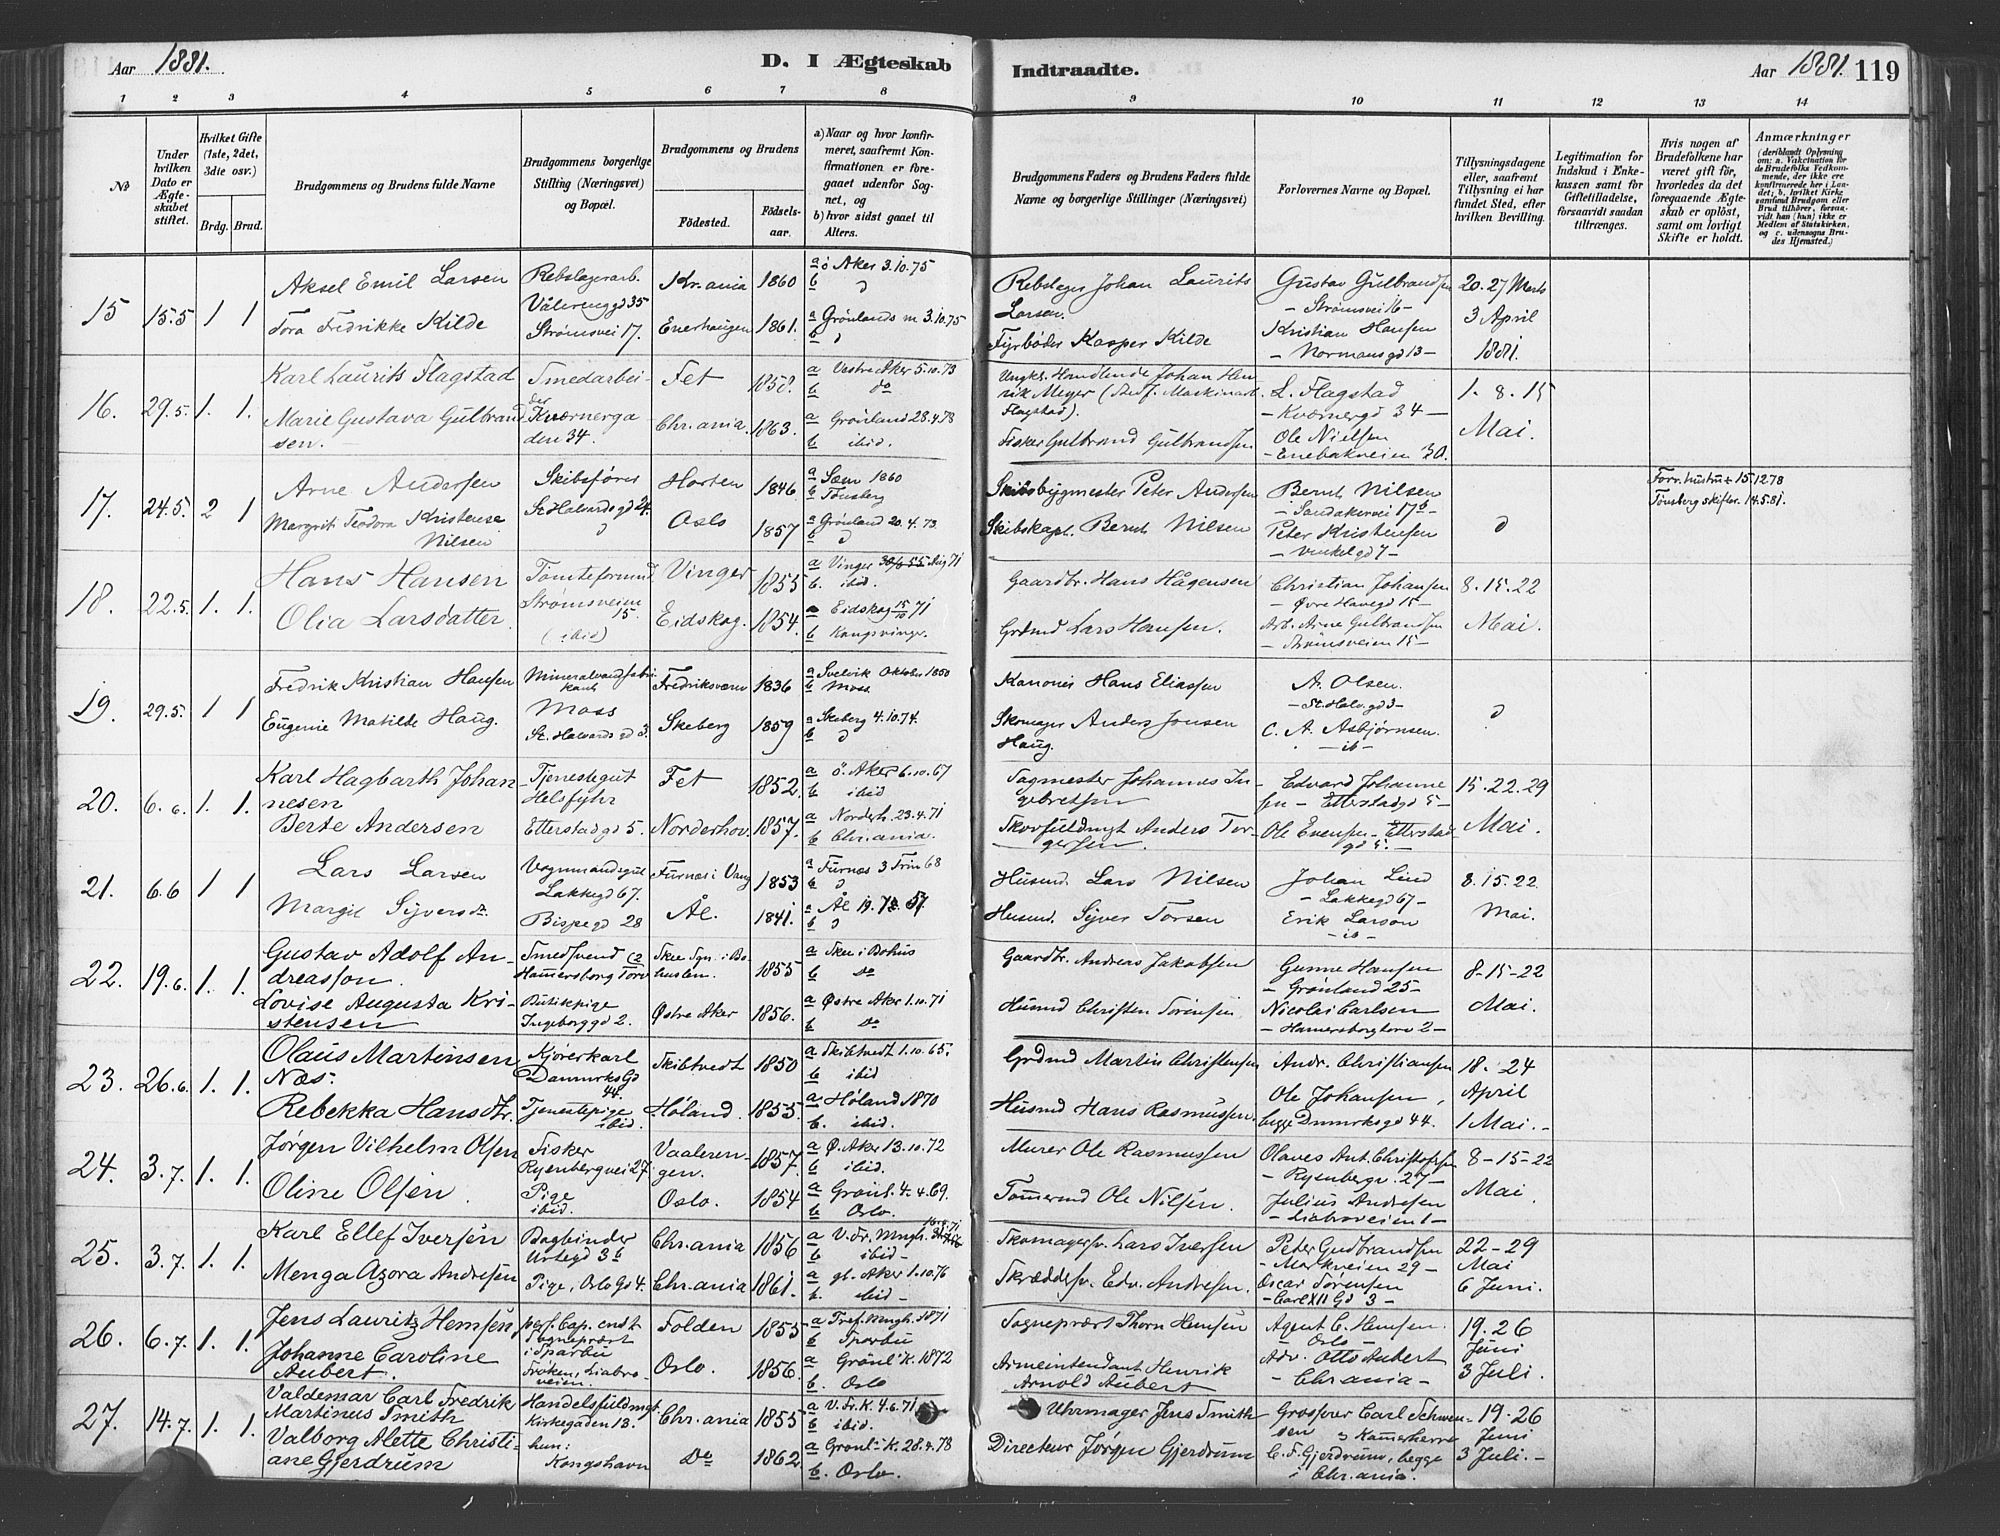 Aar 1881. D. I Ægteskab Indtraadte. Aar 1881. 119
1 2 3 4 5 6 7 8 9 10 11 12 13 14
№
Under hvilken Dato er Ægteskabet stiftet.
Hvilket Gifte (1ste, 2det, 3die osv.)
Brdg. Brud.
Brudgommens og Brudens fulde Navne
Brudgommens borgerlige Stilling (Næringsvei) og Bopæl.
Brudgommens og Brudens
Födested. Födselsaar.
a) Naar og hvor konfirmeret, saafremt Konfirmationen er foregaaet udenfor Sognet, og
b) hvor sidst gaaet til Alters.
Brudgommens Faders og Brudens Faders fulde Navne og borgerlige Stillinger (Næringsvei)
Forlovernes Navne og Bopæl.
Tillysningsdagene eller, saafremt Tillysning ei har fundet Sted, efter hvilken Bevilling.
Legitimation for Indskud i Enkekassen samt for Giftetilladelse, forsaavidt saadan tiltrænges.
Hvis nogen af Brudefolkene har været gift för, hvorledes da det foregaaende Ægteskab er oplöst, samt om lovligt Skifte er holdt.
Anmærkninger
(deriblandt Oplysning om: a. Vakcination for de Brudefolks Vedkommende, der ikke ere konfirmerede her i Landet; b. hvilket Kirkesamfund Brudgom eller Brud tilhörer, forsaavidt han (hun) ikke er Medlem af Statskirken, og c. udensogns Brudes Hjemsted.)
15 15.5 1 1
Aksel Emil Larsen
Tora Fredrikke Kilde
Rebslagerarb.
Vålerenggd 35
Strømsvei 17.
Kr.ania 1860
Enerhaugen 1861.
a ö Aker 3.10.75
b
a Grønlands m 3.10.75
b
Rebslager Johan Laurits
Larsen.
Fyrbøder Kasper Kilde
Gustav Gulbrandsen
– Strømsvei 16 –
Kristian Hansen
– Normansgd 13 –
20. 27 Marts
3 April
1881.
16. 29.5. 1. 1.
Karl Laurits Flagstad
Marie Gustava Gulbrandsen.
Smedarbeider
Kværnergaden 34.
Fet 1858.
Chr.ania. 1863.
a Vestre Aker 5.10.73
b do
a Grønland 28.4.78
b ibid.
Ungkr. Handlende Johan Henrik Meyer
Flagstad).
Fisker Gulbrand Gulbrandsen
L. Flagstad
– Kværnergd 34 –
Ole Nielsen
– Enebakveien 30.
1. 8. 15
Mai.
17. 24.5. 2 1
Arne Andersen
Margrit Teodora Kristense
Nilsen
Skibsfører
St. Halvardsgd 24.
Horten 1846
Oslo 1857
a Sæm 1860
b Tønsberg
a Grønland 20.4.73.
b
Skibsbygmester Peter Andersen
Skibskapt. Bernt Nilsen
Bernt Nilsen
– Sandakervei 17b –
Peter Kristensen
– Vinkelgd 7 –
Forr. hustru + 15.12 78
Tønsberg skifter. 14.5.81.
18. 22.5. 1. 1.
Hans Hansen
Olia Larsdatter.
Tømteformnd
Strømsveien
15.
(ibid)
Vinger 1855
Eidskog. 1854.
a Vinger Aug 71
b. ibid.
a Eidskog 15/10 71
b Kongsvinger.
Gaardbr. Hans Hågensen
Grdmd Lars Hansen.
Christian Johansen
– Øvre Havegd 15 –
Arb. Arne Gulbransen
– Strømsveien 15 –
8. 15. 22
Mai.
19. 29.5. 1 1
Fredrik Kristian Hansen
Eugenie Matilde Haug.
Mineralvandfabrikant
Moss
St. Halvards gd 3.
Fredriksværn 1836
Skeberg 1859
a Svelvik Oktober 1850
b Moss
a Skeberg 4.10.74.
b
Kanoner Hans Eliassen
Skomager Anders Jonsen
Haug.
A. Olsen.
– St. Halv.gd 3 –
C. A. Asbjørnsen.
– ib –
20. 6.6. 1. 1.
Karl Hagbarth Johannesen
Berte Andersen
Tjenestegut
Helsfyhr
Etterstadgd 5.
Fet 1852.
Norderhov. 1857.
a ö. Aker 6.10.67
b ibid.
a Norderh. 23.4.71
b Chr.ania.
Sagmester Johannes Ingebretsen
Skovfuldmgt Anders Torgersen.
Edvard Johannesen – Etterstadgd 5 –
Ole Evensen – Etterstadgd 5. –
15. 22. 29
Mai.
21. 6.6 1 1
Lars Larsen
Margit Sjversdr.
Vognmandsgut
Lakkegd 67.
Bispegd 28
Furnæs i Vang 1853
Ål. 1841.
a Furnæs 3 Trin 68
b
a Ål 19.
b
Husmd. Lars Nilsen
Husmd. Sjver Torsen
Johan Lind
– Lakkegd 67 –
Erik Larson
– ib –
8. 15. 22.
Mai.
22. 19.6. 1. 1.
Gustav Adolf Andreasson.
Lovise Augusta Kristensen
Smedsvend (2
Hammersborg Torv
Butikpige
Ingeborggd 2.
Skee Sgn. i Bohuslen. 1855
Østre Aker 1856.
a Skee i Bohus
b do
a Østre Aker 1.10.71
b do
Gaardbr. Andreas Jakobsen
Husmd Christen Sørensen
Gunne Hansen
– Grønland 25 –
Nicolai Carlsen
– Hamersborgtorv 2 –
8 – 15 – 22
Mai.
23. 26.6. 1. 1.
Olaus Martinsen
Næs.
Rebekka Hansdtr.
Kjørerkarl
Danmrks Gd
44.
Tjenestepige
ibid.
Skibtvedt 1850
Høland. 1855
a Skibtvedt 1.10.65.
b ibid
a Høland 1870
b. ibid.
Grdmd Martin Christensen
Husmd Hans Rasmussen.
Andr. Christiansen
Ole Johansen,
begge Dnmrksgd 44.
18. – 24
April
1 Mai. –
24. 3.7. 1. 1.
Jørgen Vilhelm Olsen
Oline Olsen.
Fisker
Ryenbergvei 27
Pige
ibid.
Vaalerengen. 1857.
Oslo. 1854
a Ø. Aker 13.10.72
b ibid.
a Grønl. 4.4.69.
b Oslo.
Murer Ole Rasmussen
Tømmermd Ole Nilsen.
Olaves Ant. Christofersen
– Ryenbergv. 27 –
Julius Andresen
– Liabroveien 1 –
8 – 15 – 22
Mai
25. 3.7. 1. 1.
Karl Ellef Iversen
Menga Azora Andresen
Bogbinder
Urtegd 3b
Pige, Oslo Gd 4.
Chr.ania 1856
Chr.ania 1861.
a V. Fr. Mngh.
b ibid –
a gl. Aker 1.10.76
b. ibid –
Skomagersv. Lars Iversen
Skræddersv. Edv. Andresen.
Peter Gudbrandsen
– Markveien 29 –
Oscar Sørensen
– Carl XII Gd 3 –
22 – 29
Mai
6 Juni.
26. 6.7. 1. 1.
Jens Lauritz Hemsen,
Johanne Caroline
Aubert.
pers. Cap. en st.
Sogneprest
i Sparbu
Frøken, Liabroveien.
Folden 1855
Oslo. 1856.
a Tref. Mngh. 1871
b Sparbu
a Grönl. K. 1872
b. Oslo
Sogneprest Thorn Hemsen
Armeintendant Henrik
Arnold Aubert
Agent C. Hemsen.
– Oslo –
Adv. Otto Aubert
– Chr.ania –
19. 26
Juni
3 Juli.
27. 14.7. 1. 1.
Valdemar Carl Fredrik
Martinus Smith
Valborg Alette Christiane Gjerdrum
Handelsfuldmgt
Kirkegaden 13.
hun:
Kongshavn
Chr.ania 1855
Do 1862.
a V. Fr. K. 4.6.71
b ibid.
a Grönl. K. 28.4.78
b. Oslo.
Uhrmager Jens Smith
Directeur Jørgen Gjerdrum
Grosserer Carl Schwensen & Kammerherre
C. F. Gjerdrum, begge
i Chr.ania.
19. 26
Juni
3 Juli. –